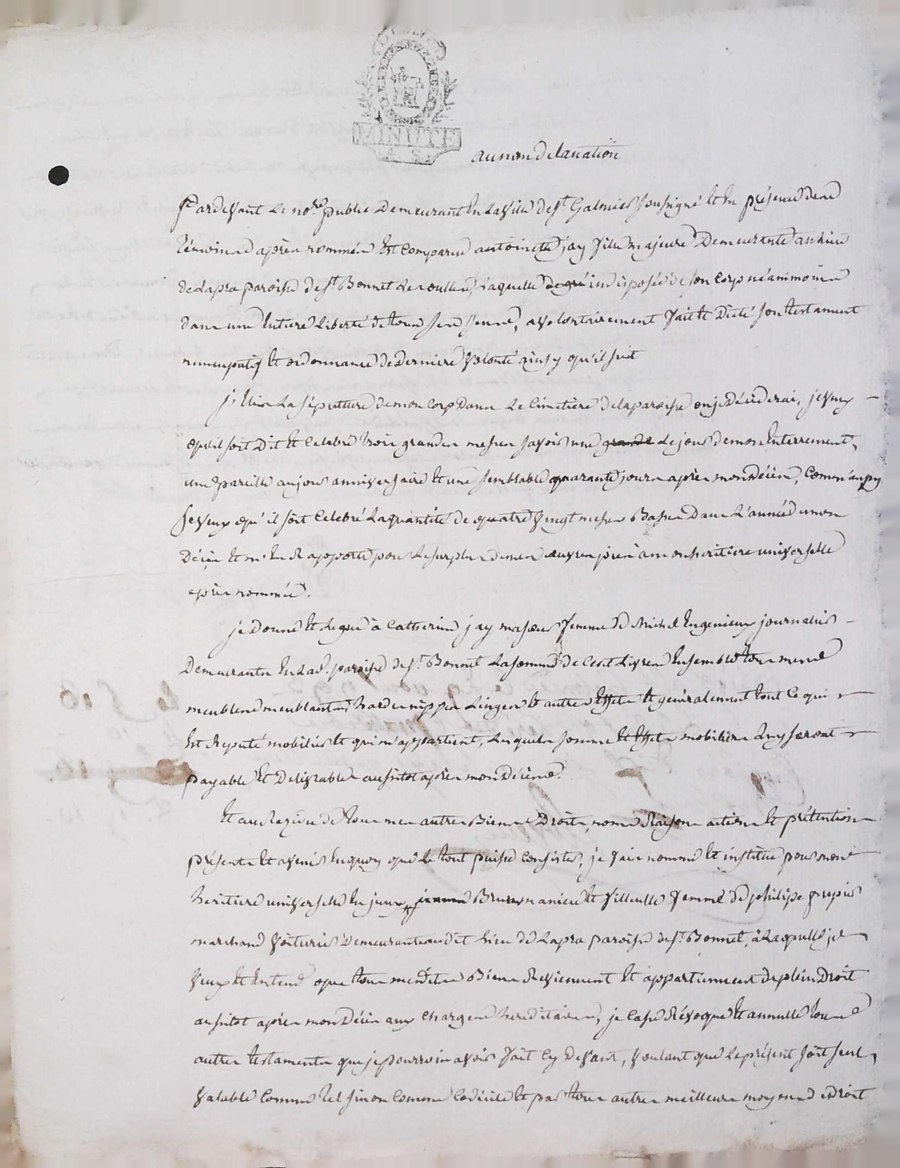 MINUTE
au nom de la nation
Pardevant le no.re public demeurant en la ville de St Galmier soussigné et en présence des
témoins après nommés est comparue antoinette jay fille majeure demeurante au lieu
de Lapra paroisse de St Bonnet les oulles, laquelle indisposée de son corp néanmoins
dans une entiere liberté de tous ses sens, a volontairement fait et dicté son testament
nuncupatif et ordonnance de derniere volonté ainsy qu'il suit
j'Elis la sépulture de mon corp dans le cimetière de la paroisse ou je décéderai, je veux
qu'il soit dit et celebré trois grandes messes savoir une le jour de mon enterrement,
une pareille au jour anniversaire et une semblable quarante jours après mon décès, comm'aussy
je veux qu'il soit celebré la quantité de quatre vingt messes basses dans l'année de mon
décès et m'en rapporte pour le surplus de mes œuvres pies à mon heritiere universelle
après nommée.
je donne et legue à Catherine jay ma sœur femme de Michel Engenieux journalier
demeurante en lad. paroisse de St Bonnet la somme de cent livres ensemble tous mes
meubles meublants hardes nippes linges et autres effets et généralement tout ce qui
est réputé mobilier et qui m'appartient, lesquels somme et effets mobiliers luy seront
payable et délivrable aussitot après mon décès.
Et au Résidu de tous mes autres Biens Droits, noms Raisons actions et prétentions
présents et avenir en quoy que le tout puisse consister, je fais nomme et institue pour mon
heritiere universelle Brun ma niece et filleulle femme de philipe
marchand voiturier demeurante audit lieu de Lapra paroisse de St Bonnet, à laquelle je
veux et entend que tous mesdits Biens Reviennent et appartiennent de plein Droit
aussitot après mon décès aux charges hereditaires, je casse Révoque et annulle tous
autres testaments que je pourrois avoir fait cy devant, voulant que le présent soit seul
valable comme tel sinon comme codicile et par tous autres meilleurs moyens de droit